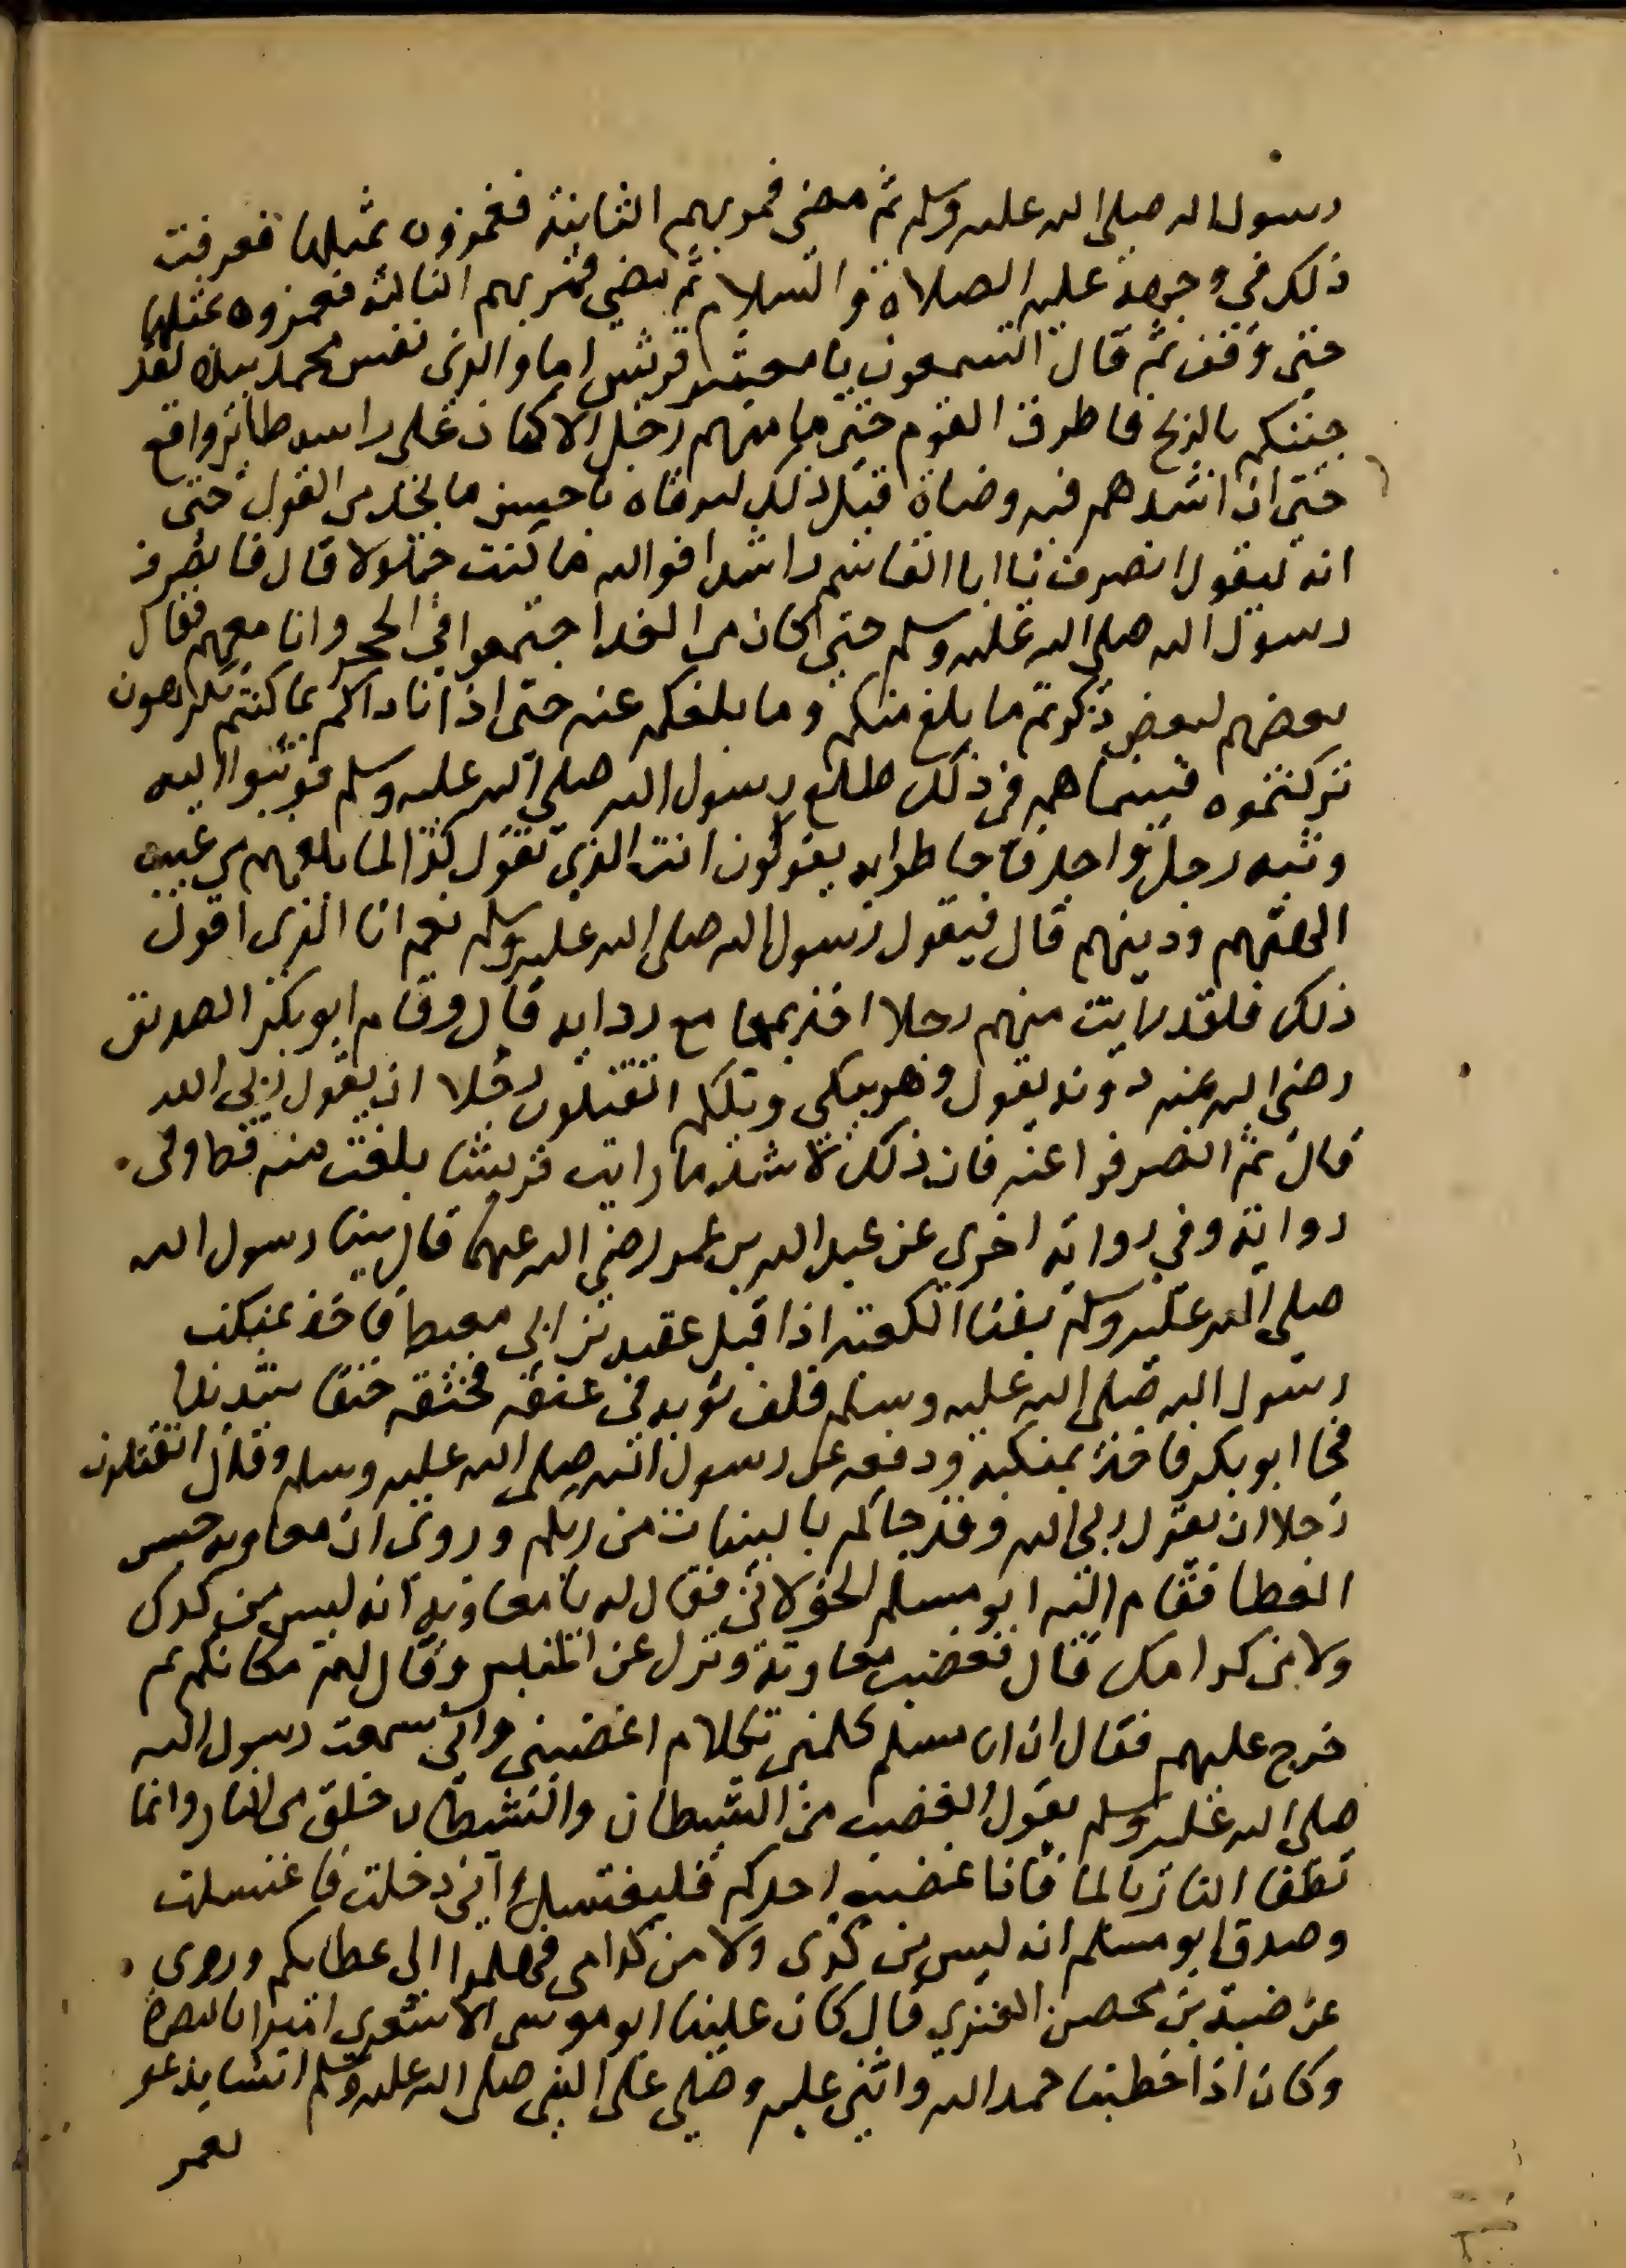 رسول الله صلى الله عليه وسلم ثم مضى فمر بهم الثانية فغمزوه بمثلها فعرفت
ذلك في وجهه عليه الصلاة والسلام ثم مضى فمر بهم الثالثة فغمزوه بمثلها
حتى وقف ثم قال اتسمعون يا معشر قريش اما والذي نفس محمد بيده لقد
جئتكم بالذبح فاطرق القوم حتى ما منهم رجل الا كان على راسه طائر واقع
حتى ان اشدهم فيه وضاة قبل ذلك ليرفاه باحسن ما يجد من القول حتى
انه ليقول انصرف يا ابا القاسم راشدا فوالله ما كنت جهولا قال فانصرف
رسول الله صلى الله عليه وسلم حتى اكان من الغد اجتمعوا في الحجر وانا معهم فقال
بعضهم لبعض ذكرتم ما بلغ منكم وما بلغكم عنه حتى اذا ناداكم بما كنتم تكرهون
تركتموه فبينما هم في ذلك طلع رسول الله صلى الله عليه وسلم فوثبوا اليه
وثبه رجل واحد فاحاطوا به يقولون انت الذي تقول كذا لما بلغهم من عيب
الهتهم ودينهم قال فيقول رسول الله صلى الله عليه وسلم نعم انا الذي اقول
ذلك فلقد رايت منهم رجلا اخذ بمجامع ردايه قال وقام ابو بكر الصديق
رضي الله عنه دونه يقول وهو يبكي ويلكم اتقتلون رجلا ان يقول ربي الله
قال ثم انصرفوا عنه فان ذلك لاشد ما رايت قريشا بلغت منه قط وفي
رواية وفي رواية اخرى عن عبد الله بن عمر رضي الله عنهما قال بينا رسول الله
صلى الله عليه وسلم بفنا الكعبة اذ اقبل عقبه بن ابي معيط فاخذ بمنكب
رسول الله صلى الله عليه وسلم فلف ثوبه في عنقه فخنقه خنقا شديدا
فجا ابو بكر فاخذ بمنكبه ودفعه عن رسول الله صلى الله عليه وسلم وقال اتقتلون
رجلا ان يقول ربي الله وقد جاكم بالبينات من ربكم وروى ان معاويه حبس
العطا فقام اليه ابو مسلم الخولاني فقال له يا معاويه انه ليس من كدك
ولا من كد امك قال فغضب معاوية ونزل عن المنبر وقال لهم مكانكم ثم
خرج عليهم فقال ان ابا مسلم كلمني بكلام اغضبني واني سمعت رسول الله
صلى الله عليه وسلم يقول الغضب من الشيطان والشيطان خلق من النار وانما
تطفا النار بالما فاذا غضب احدكم فليغتسل اني دخلت فاغتسلت
وصدق ابو مسلم انه ليس من كدي ولا من كد امي فهلموا الى عطايكم وروى
عن ضبة بن محصن العنزي قال كان علينا ابو موسى الاشعري اميرا بالبصرة
وكان اذا خطبنا حمد الله واثنى عليه وصلى على النبي صلى الله عليه وسلم انشا يدعو
لعمر